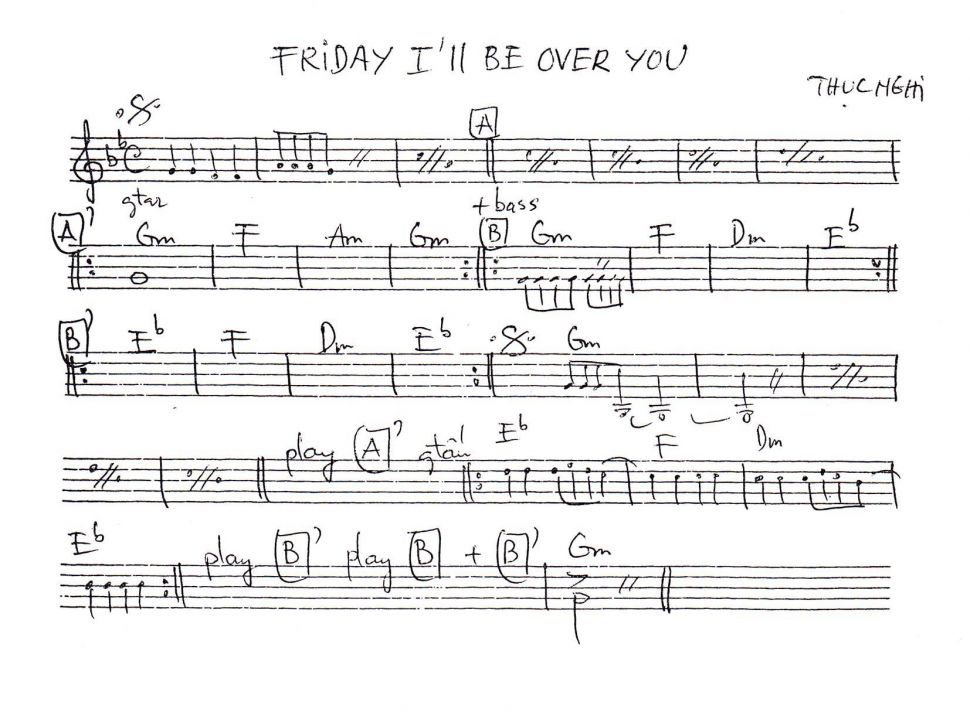 FRIDAY I'll BE OVER YOU
THỤC NGHI
A
gtar +bass
A' Gm F Am Gm B Gm F Dm Eb
B' Eb F Dm Eb Gm
play A' Eb F Dm
Eb play B' play B + B' Gm